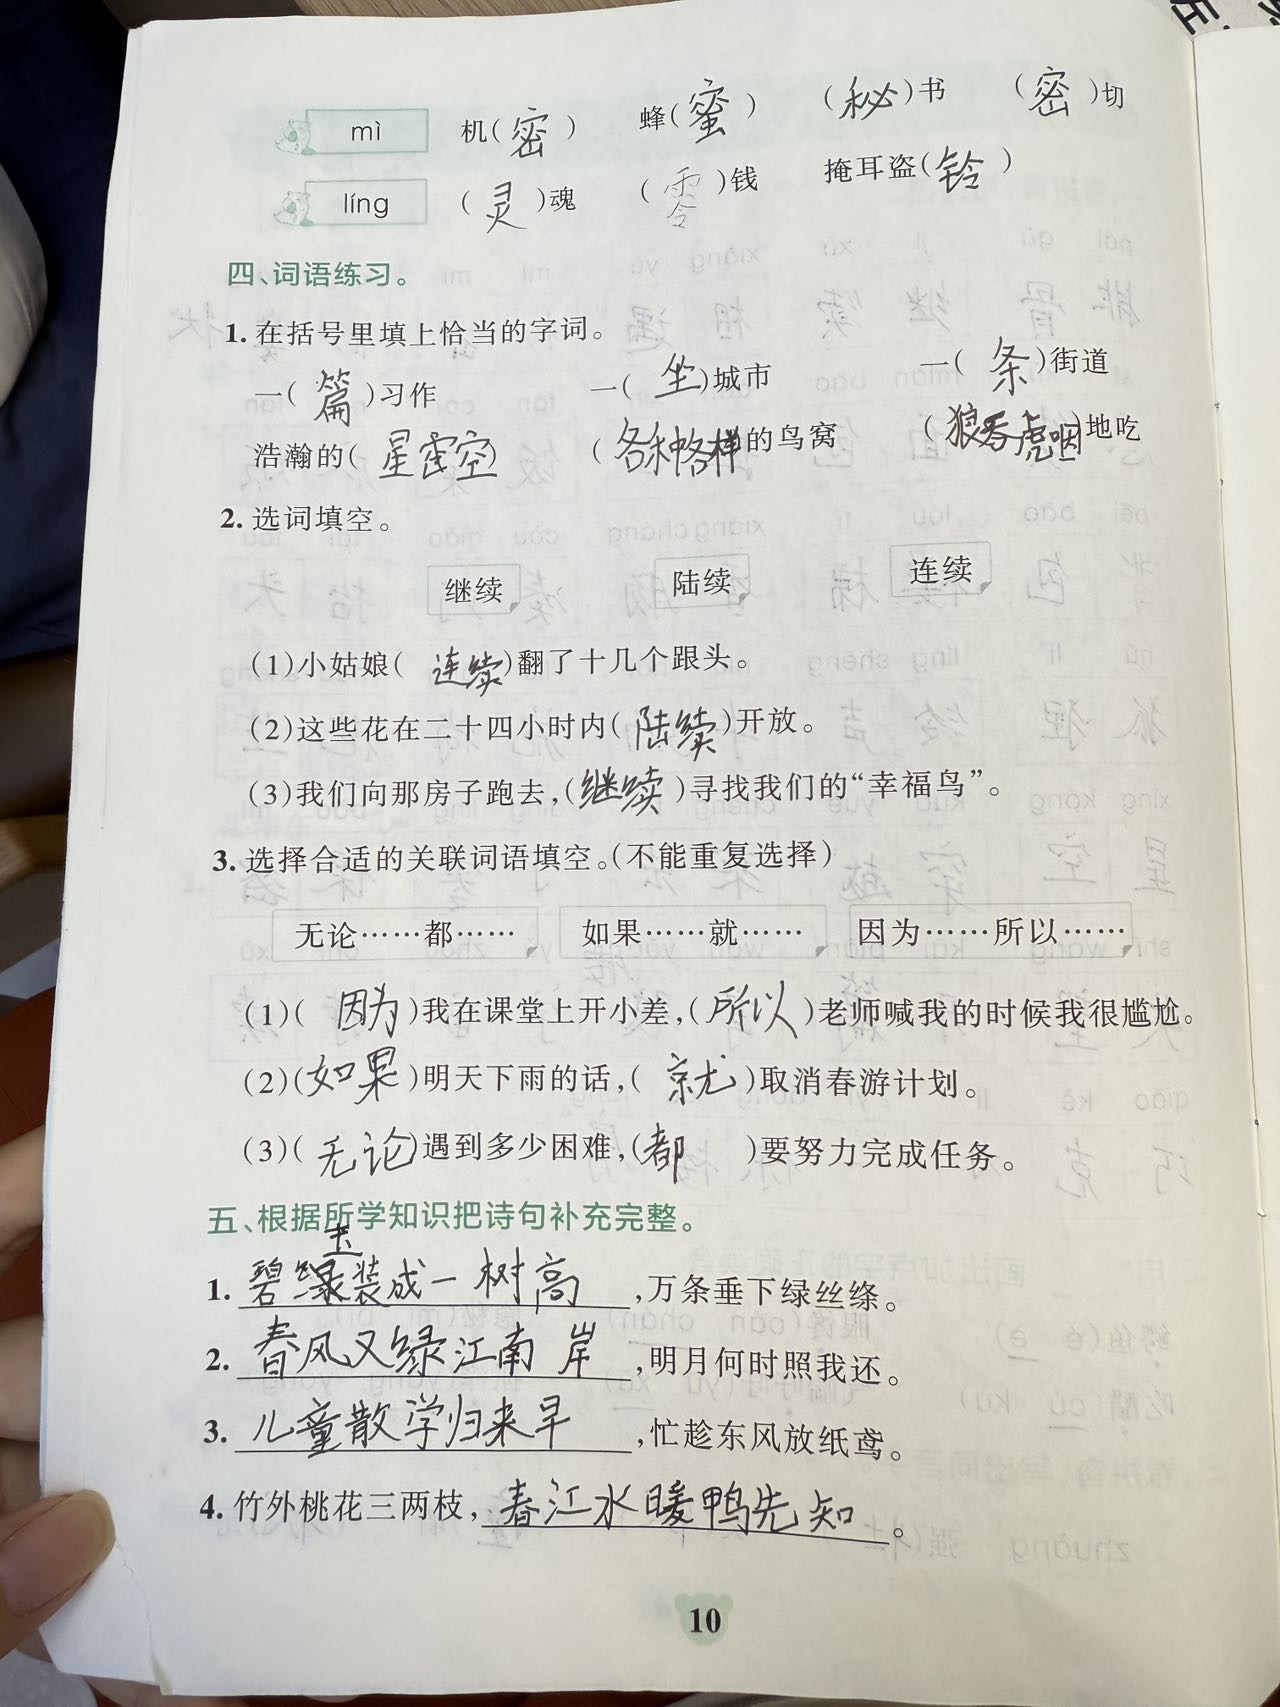 mì 机(密) 蜂(蜜) (秘)书 (密)切
líng (灵)魂 (零)钱 掩耳盗(铃)
四、词语练习。
1. 在括号里填上恰当的字词。
一(篇)习作 一(坐)城市 一(条)街道
浩瀚的(星空) (各种各样)的鸟窝 (狼吞虎咽)地吃
2. 选词填空。
继续 陆续 连续
(1)小姑娘(连续)翻了十几个跟头。
(2)这些花在二十四小时内(陆续)开放。
(3)我们向那房子跑去,(继续)寻找我们的“幸福鸟”。
3. 选择合适的关联词语填空。(不能重复选择)
无论……都…… 如果……就…… 因为……所以……
(1)(因为)我在课堂上开小差,(所以)老师喊我的时候我很尴尬。
(2)(如果)明天下雨的话,(就)取消春游计划。
(3)(无论)遇到多少困难,(都)要努力完成任务。
五、根据所学知识把诗句补充完整。
1. 碧玉装成一树高,万条垂下绿丝绦。
2. 春风又绿江南岸,明月何时照我还。
3. 儿童散学归来早,忙趁东风放纸鸢。
4. 竹外桃花三两枝,春江水暖鸭先知。
10